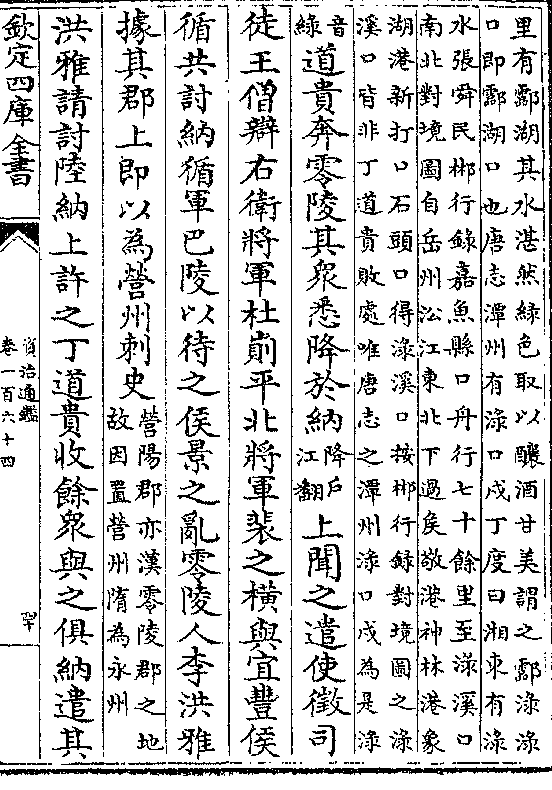 里有酃湖其水湛然綠色取以釀酒甘美謂之酃淥淥
口即酃湖口也唐志潭州有淥口戍丁度曰湘東有淥
水張舜民郴行錄嘉魚縣口舟行七十餘里至淥溪口
南北對境圖自岳州㳂江東北下過侯敬港神林港象
湖港新打口石頭口得淥溪口按郴行錄對境圖之淥
溪口皆非丁道貴敗處唯唐志之潭州淥口戍為是淥
音綠道貴奔零陵其衆悉降於納降戶江翻上聞之遣使徵司
徒王僧辯右衛將軍杜崱平北將軍裴之橫與宜豐侯
循共討納循軍巴陵以待之侯景之亂零陵人李洪雅
據其郡上即以為營州刺史營陽郡亦漢零陵郡之地故因置營州隋為永州
洪雅請討陸納上許之丁道貴收餘衆與之俱納遣其
欽定四庫全書
資治通鑑
卷一百六十四